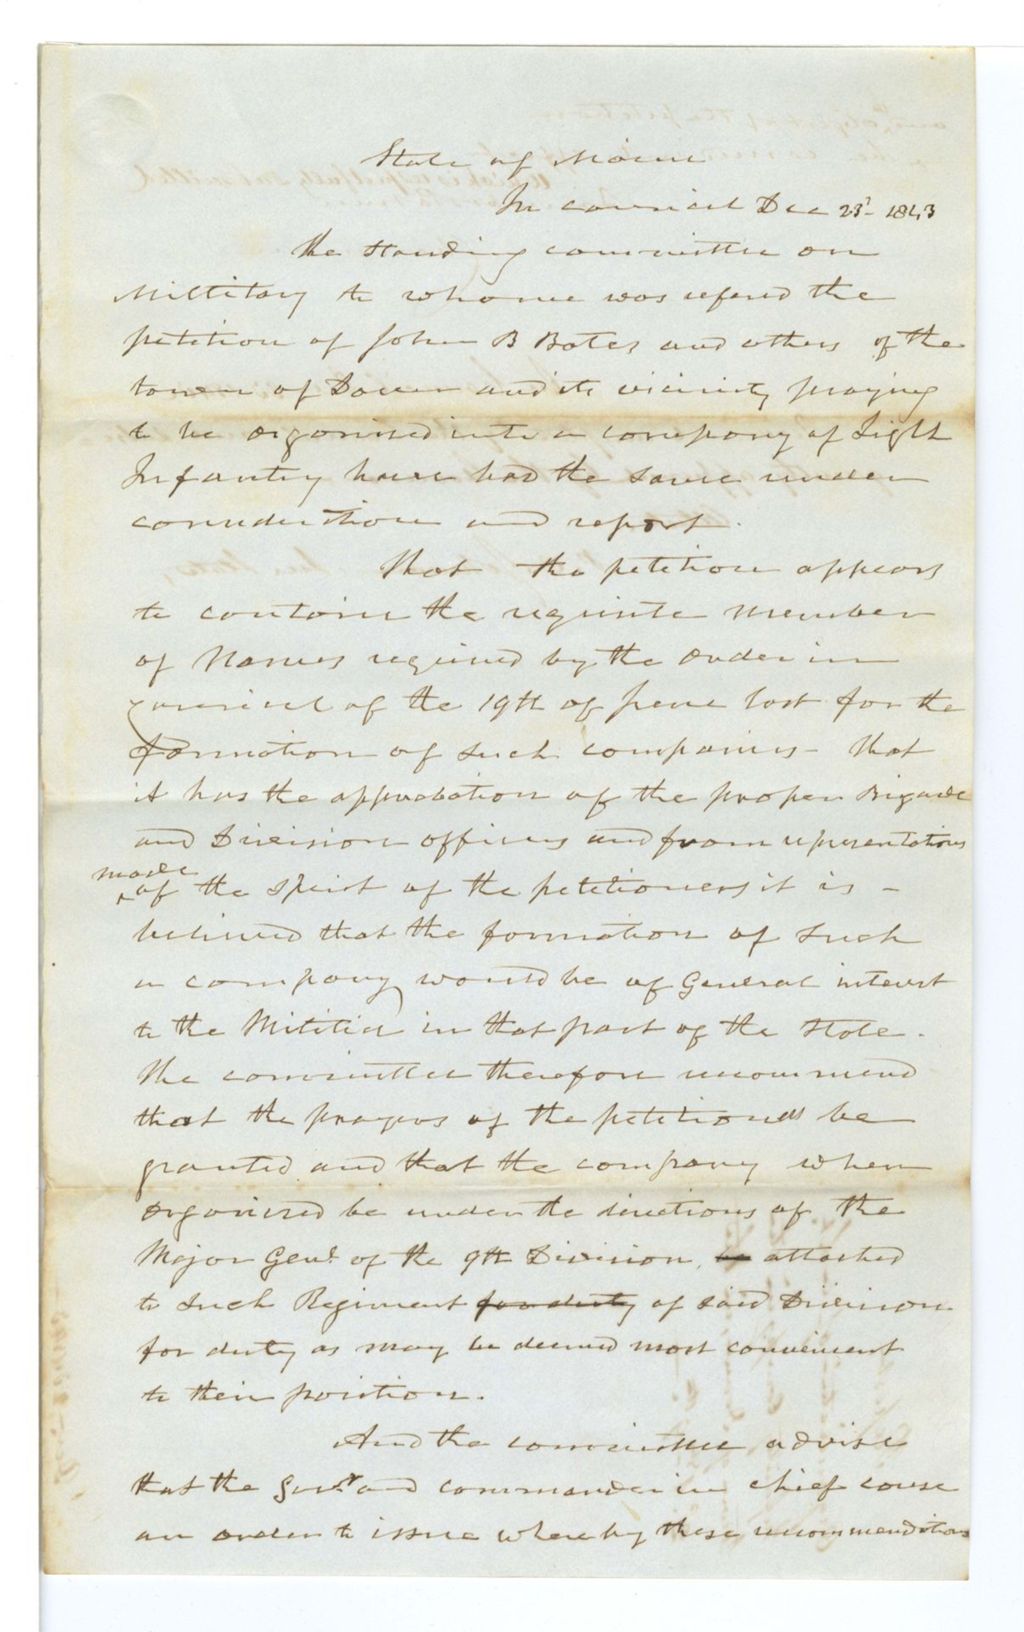 State of Maine
In council Dec 23d 1843
The Standing committee on
Millitary to whome was refered the
petition of John B Bates and others of the
town of Dover and its vicinity praying
to be organised into a company of Light
Infantry have had the same under
consideration and report.
That the petition appears
to contain the requisite number
of Names required by the order in
Council of the 19th of June last for the
formation of such companies - that
it has the approbation of the proper Brigade
and Division officers and from representations
made
of the spirit of the petitioners it is -
believed that the formation of such
a company would be of General interest
to the Militia in that part of the State.
The committee therefore recommend
that the prayers of the petitioners be
granted and that the company when
organised be under the directions of the
Major Genl. of the 9th Division, be attached
to such Regiment for duty of said Division
for duty as may be deemed most convenient
to their position.
And the committee advise
that the Govr. and commander in chief cause
an order to issue whereby these recommendations